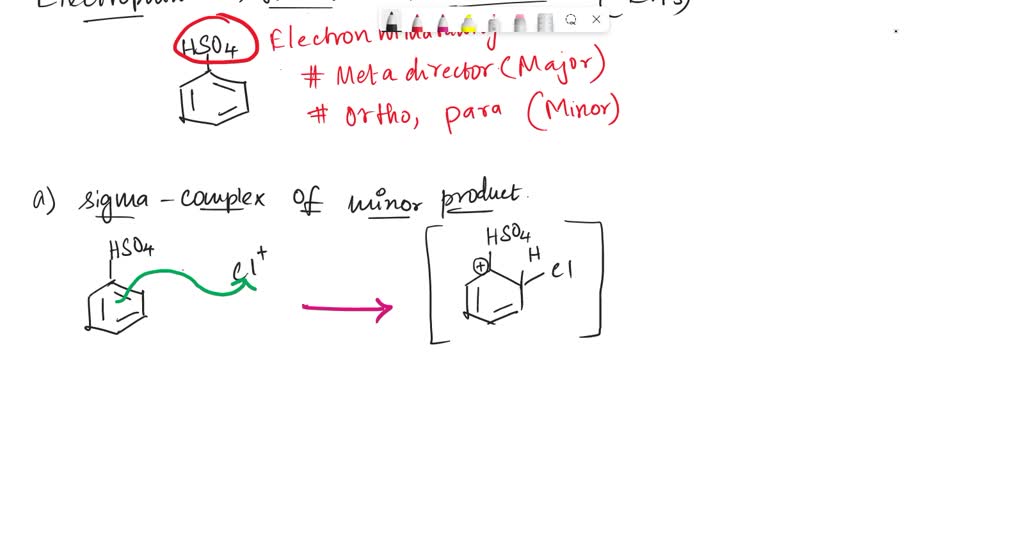 HSO4
# Meta director (Major)
# Ortho, para (Minor)
a) sigma - complex of minor product.
HSO4
Cl+
HSO4
H
+
Cl